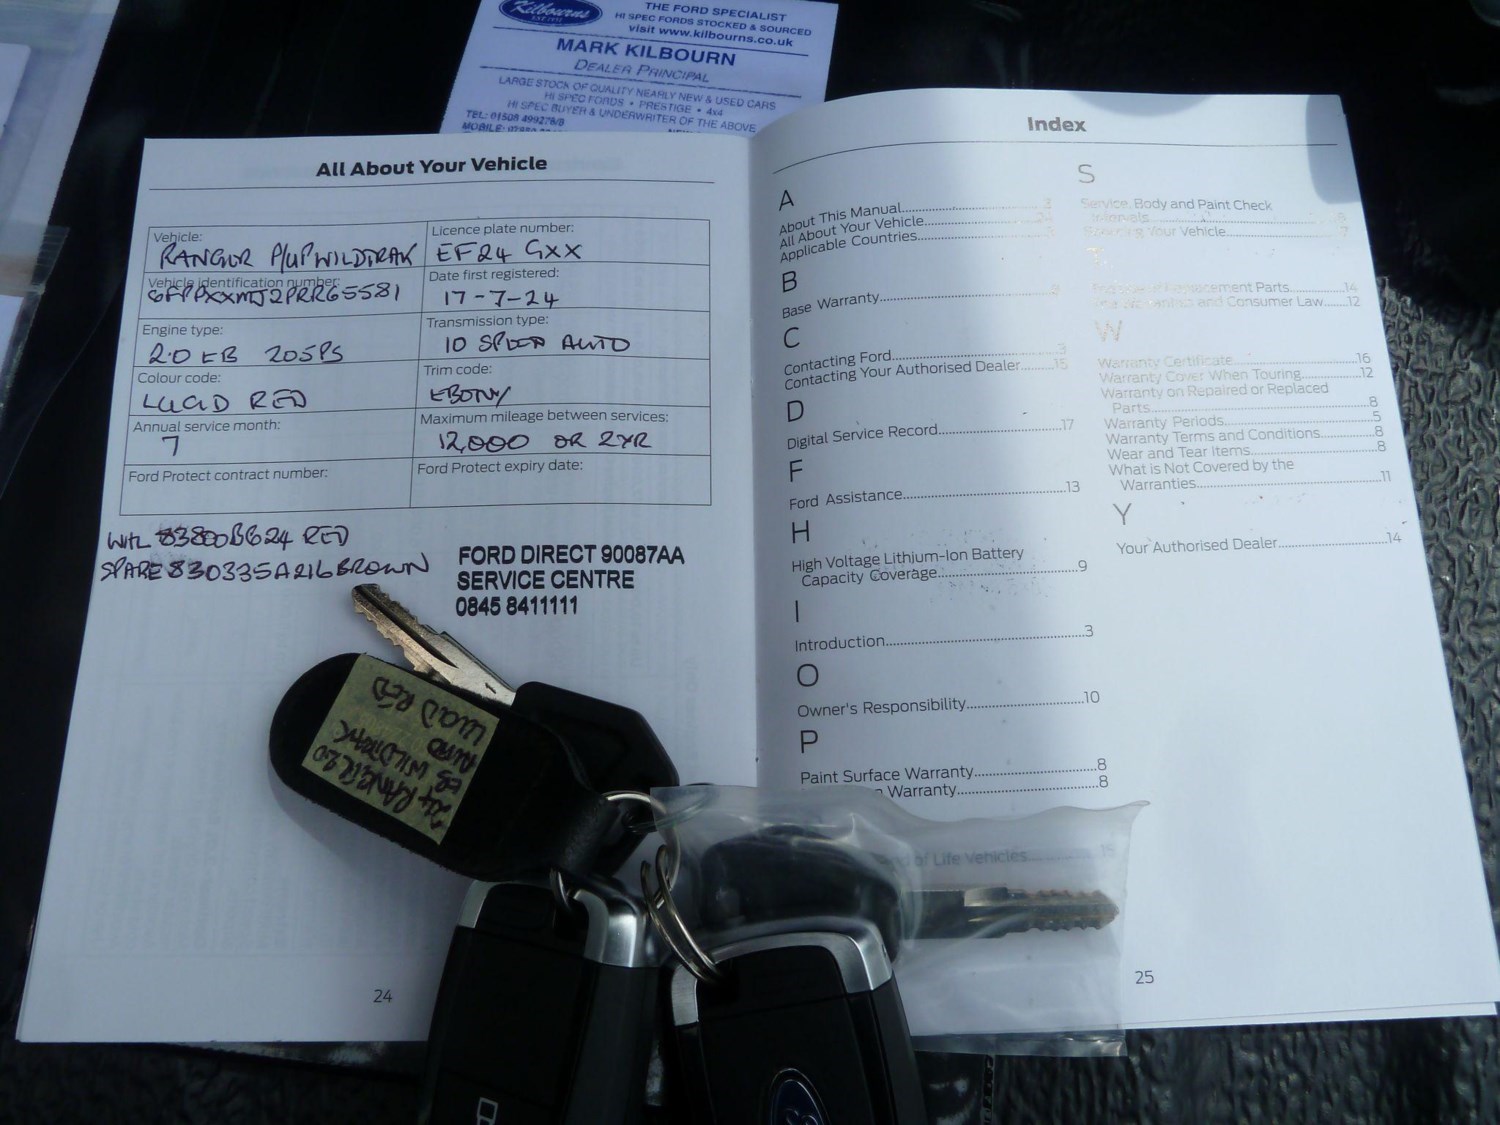 Kilbourns
THE FORD SPECIALIST
HI SPEC FORDS STOCKED & SOURCED
visit www.kilbourns.co.uk
MARK KILBOURN
DEALER PRINCIPAL
LARGE STOCK OF QUALITY NEARLY NEW & USED CARS
HI SPEC FORDS • PRESTIGE • 4x4
HI SPEC BUYER & UNDERWRITER OF THE ABOVE
TEL: 01508 499278/8
MOBILE:
All About Your Vehicle
Vehicle:
RANGER P/UP WILDTRAK
Licence plate number:
EF24 GXX
Vehicle identification number:
6FPPXXMJ2PRR65581
Date first registered:
17-7-24
Engine type:
2.0 EB 205PS
Transmission type:
10 SPEED AUTO
Colour code:
LUCID RED
Trim code:
EBONY
Annual service month:
7
Maximum mileage between services:
12,000 OR 2YR
Ford Protect contract number:
Ford Protect expiry date:
WHL 83800B624 RED
SPARE 830335A216 BROWN
FORD DIRECT 90087AA
SERVICE CENTRE
0845 8411111
24 RANGER 2.0
EB WILDTRAK
AUTO
LUCID RED
24
Index
A
About This Manual 3
All About Your Vehicle 24
Applicable Countries
B
Base Warranty 9
C
Contacting Ford 3
Contacting Your Authorised Dealer 15
D
Digital Service Record 17
F
Ford Assistance 13
H
High Voltage Lithium-Ion Battery
Capacity Coverage 9
I
Introduction 3
O
Owner's Responsibility 10
P
Paint Surface Warranty 8
Warranty 8
of Life Vehicles
S
Service, Body and Paint Check
Intervals 6
Your Vehicle 7
T
Replacement Parts 14
and Consumer Law 12
W
Warranty Certificate 16
Warranty Cover When Touring 12
Warranty on Repaired or Replaced
Parts 8
Warranty Periods 5
Warranty Terms and Conditions 8
Wear and Tear Items 8
What is Not Covered by the
Warranties 11
Y
Your Authorised Dealer 14
25